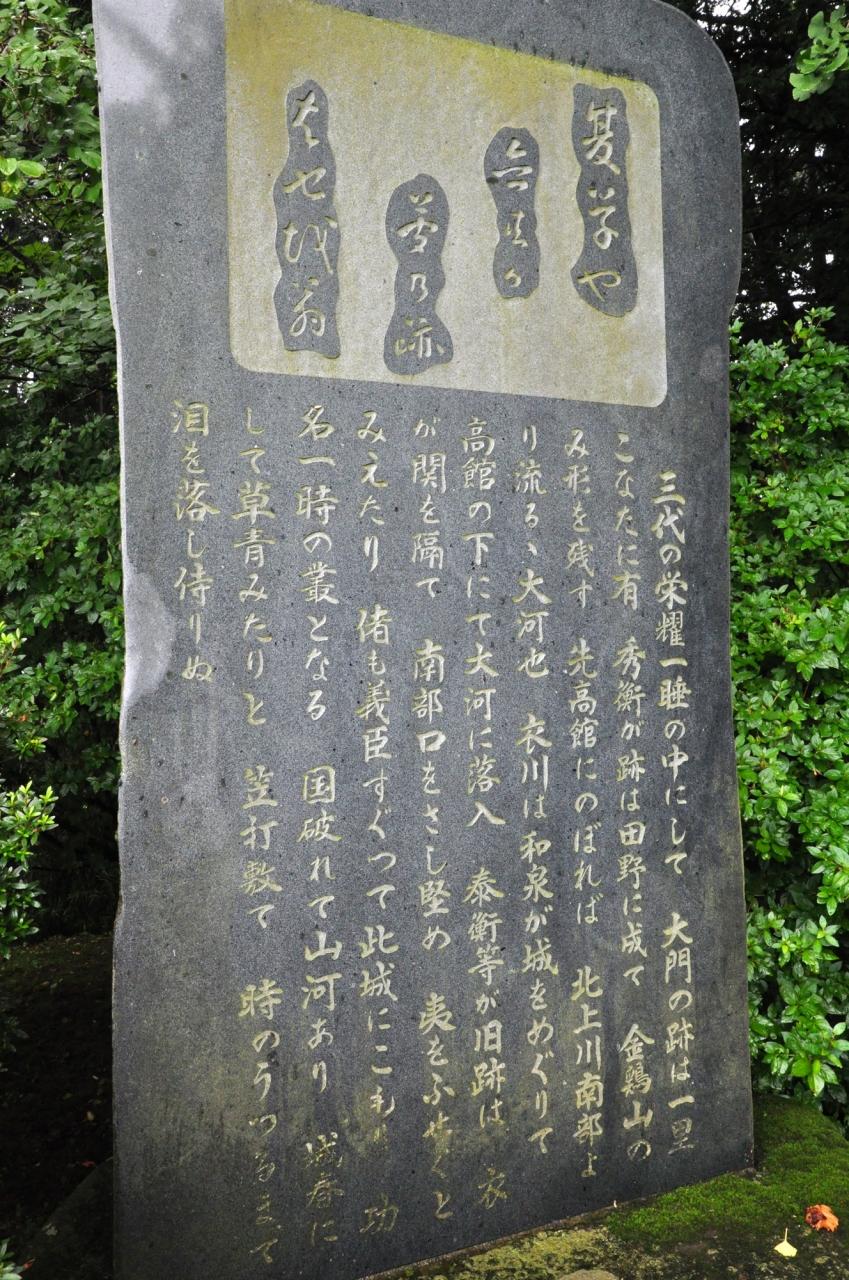 夏草や
兵共か
夢乃跡
はせ越翁
三代の栄耀一睡の中にして 大門の跡は一里
こなたに有 秀衡が跡は田野に成て 金鶏山の
み形を残す 先高館にのぼれば 北上川南部よ
り流るゝ大河也 衣川は和泉が城をめぐりて
高館の下にて大河に落入 泰衡等が旧跡は 衣
が関を隔て 南部口をさし堅め 夷をふせぐと
みえたり 偖も義臣すぐつて此城にこもり 功
名一時の叢となる 国破れて山河あり 城春に
して草青みたりと 笠打敷て 時のうつるまて
泪を落し侍りぬ